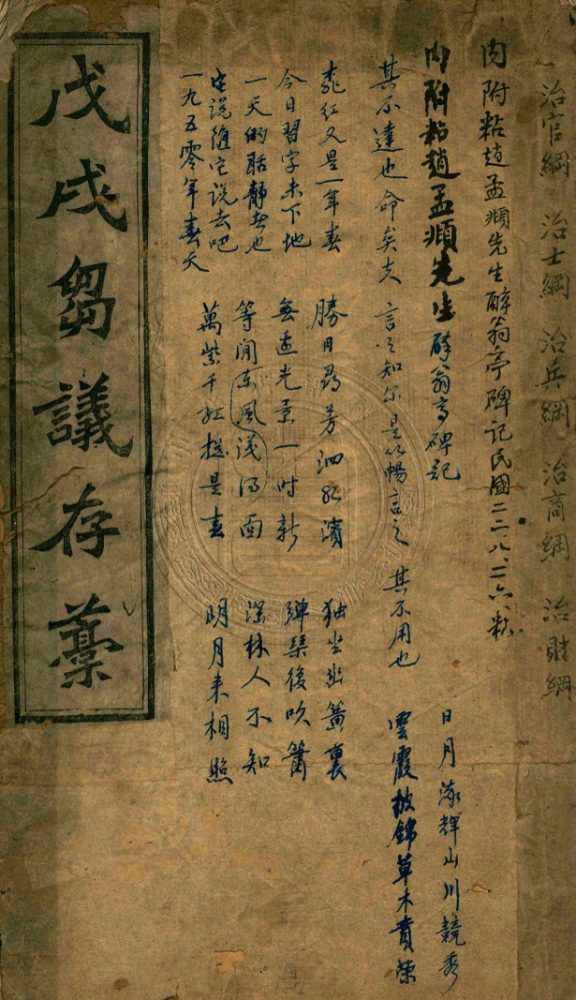 治官綱 治士綱 治兵綱 治商綱 治財綱
内附粘趙孟頫先生醉翁亭碑记民國二二、八、二六、粘
内附粘趙孟頫先生醉翁亭碑記
日月流輝山川競秀
其不達也命矣夫 言之知你是以暢言之 其不用也
雲霞披錦草木賁榮
桃红又是一年春
今日習字未下地
一天的聒静者也
它说随它说去吧
一九五零年春天
勝日尋芳泗水濱
無邊光景一时新
等闲东風识得面
萬紫千红摠是春
独坐幽篁裏
弹琴後吹簫
深林人不知
明月来相照
戊戌芻議存藁